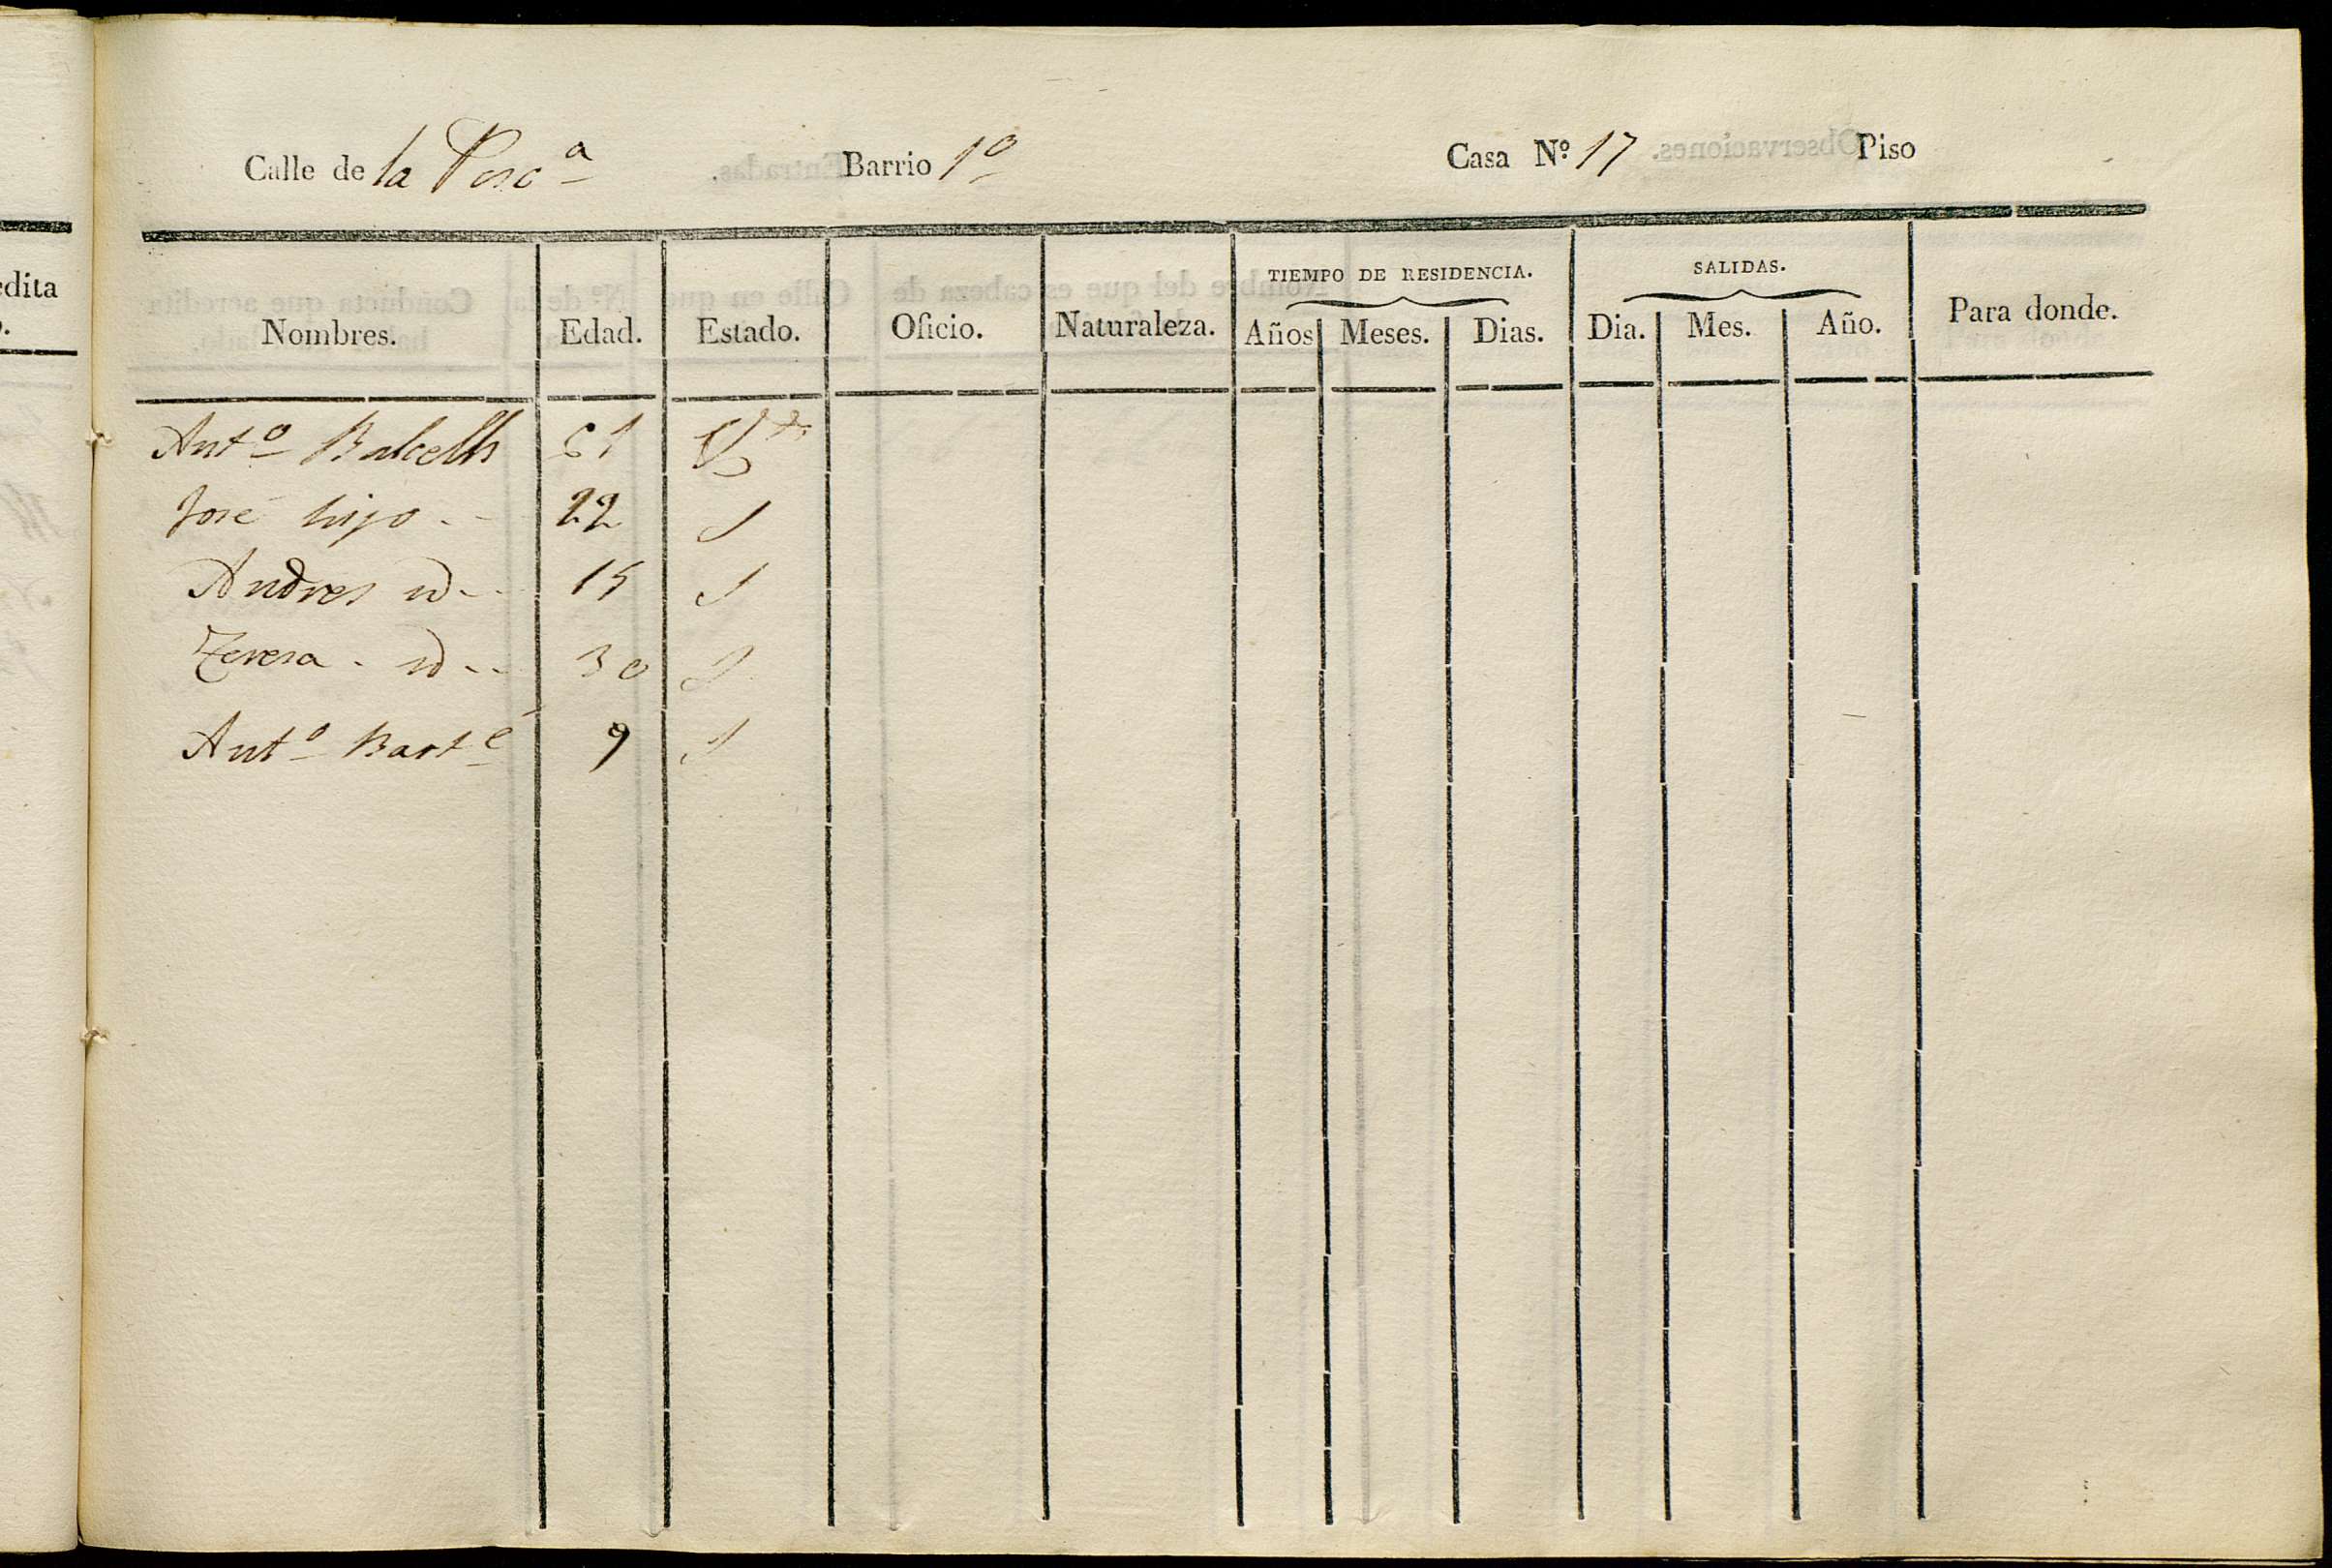 Calle de la Pesc.ª Barrio 1º Casa Nº 17 Piso
TIEMPO DE RESIDENCIA. SALIDAS.
Nombres. Edad. Estado. Oficio. Naturaleza. Años Meses. Dias. Dia. Mes. Año. Para donde.
Antº Balcells 61 Vdo
José hijo 22 S
Andres id 15 S
Teresa id 30 S
Antº Barté 9 S
edita